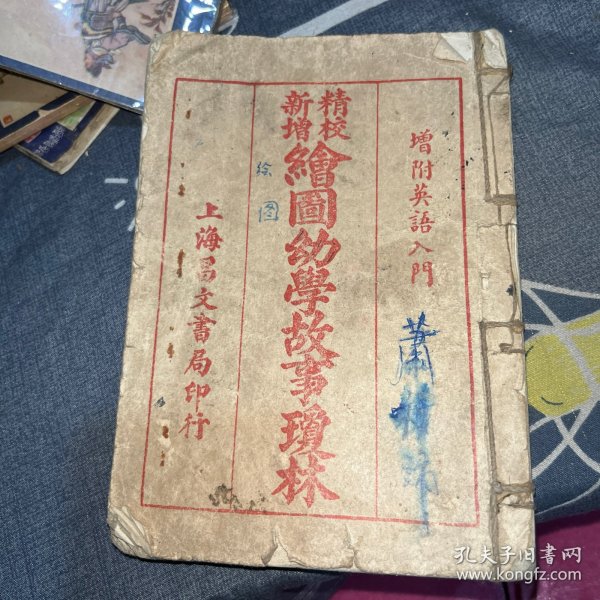 增附英語入門
精校
新增
繪圖幼學故事瓊林
上海昌文書局印行
绘图
蕭
孔夫子旧书网
www.kongfz.com